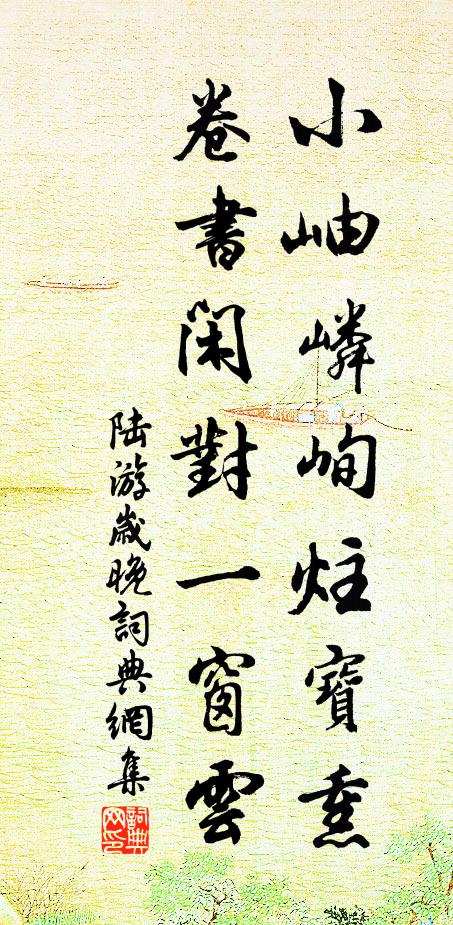 小岫嶙峋炷寶熏
卷書閑對一窗雲
陸游歲晚詞典網集
詞典
网印